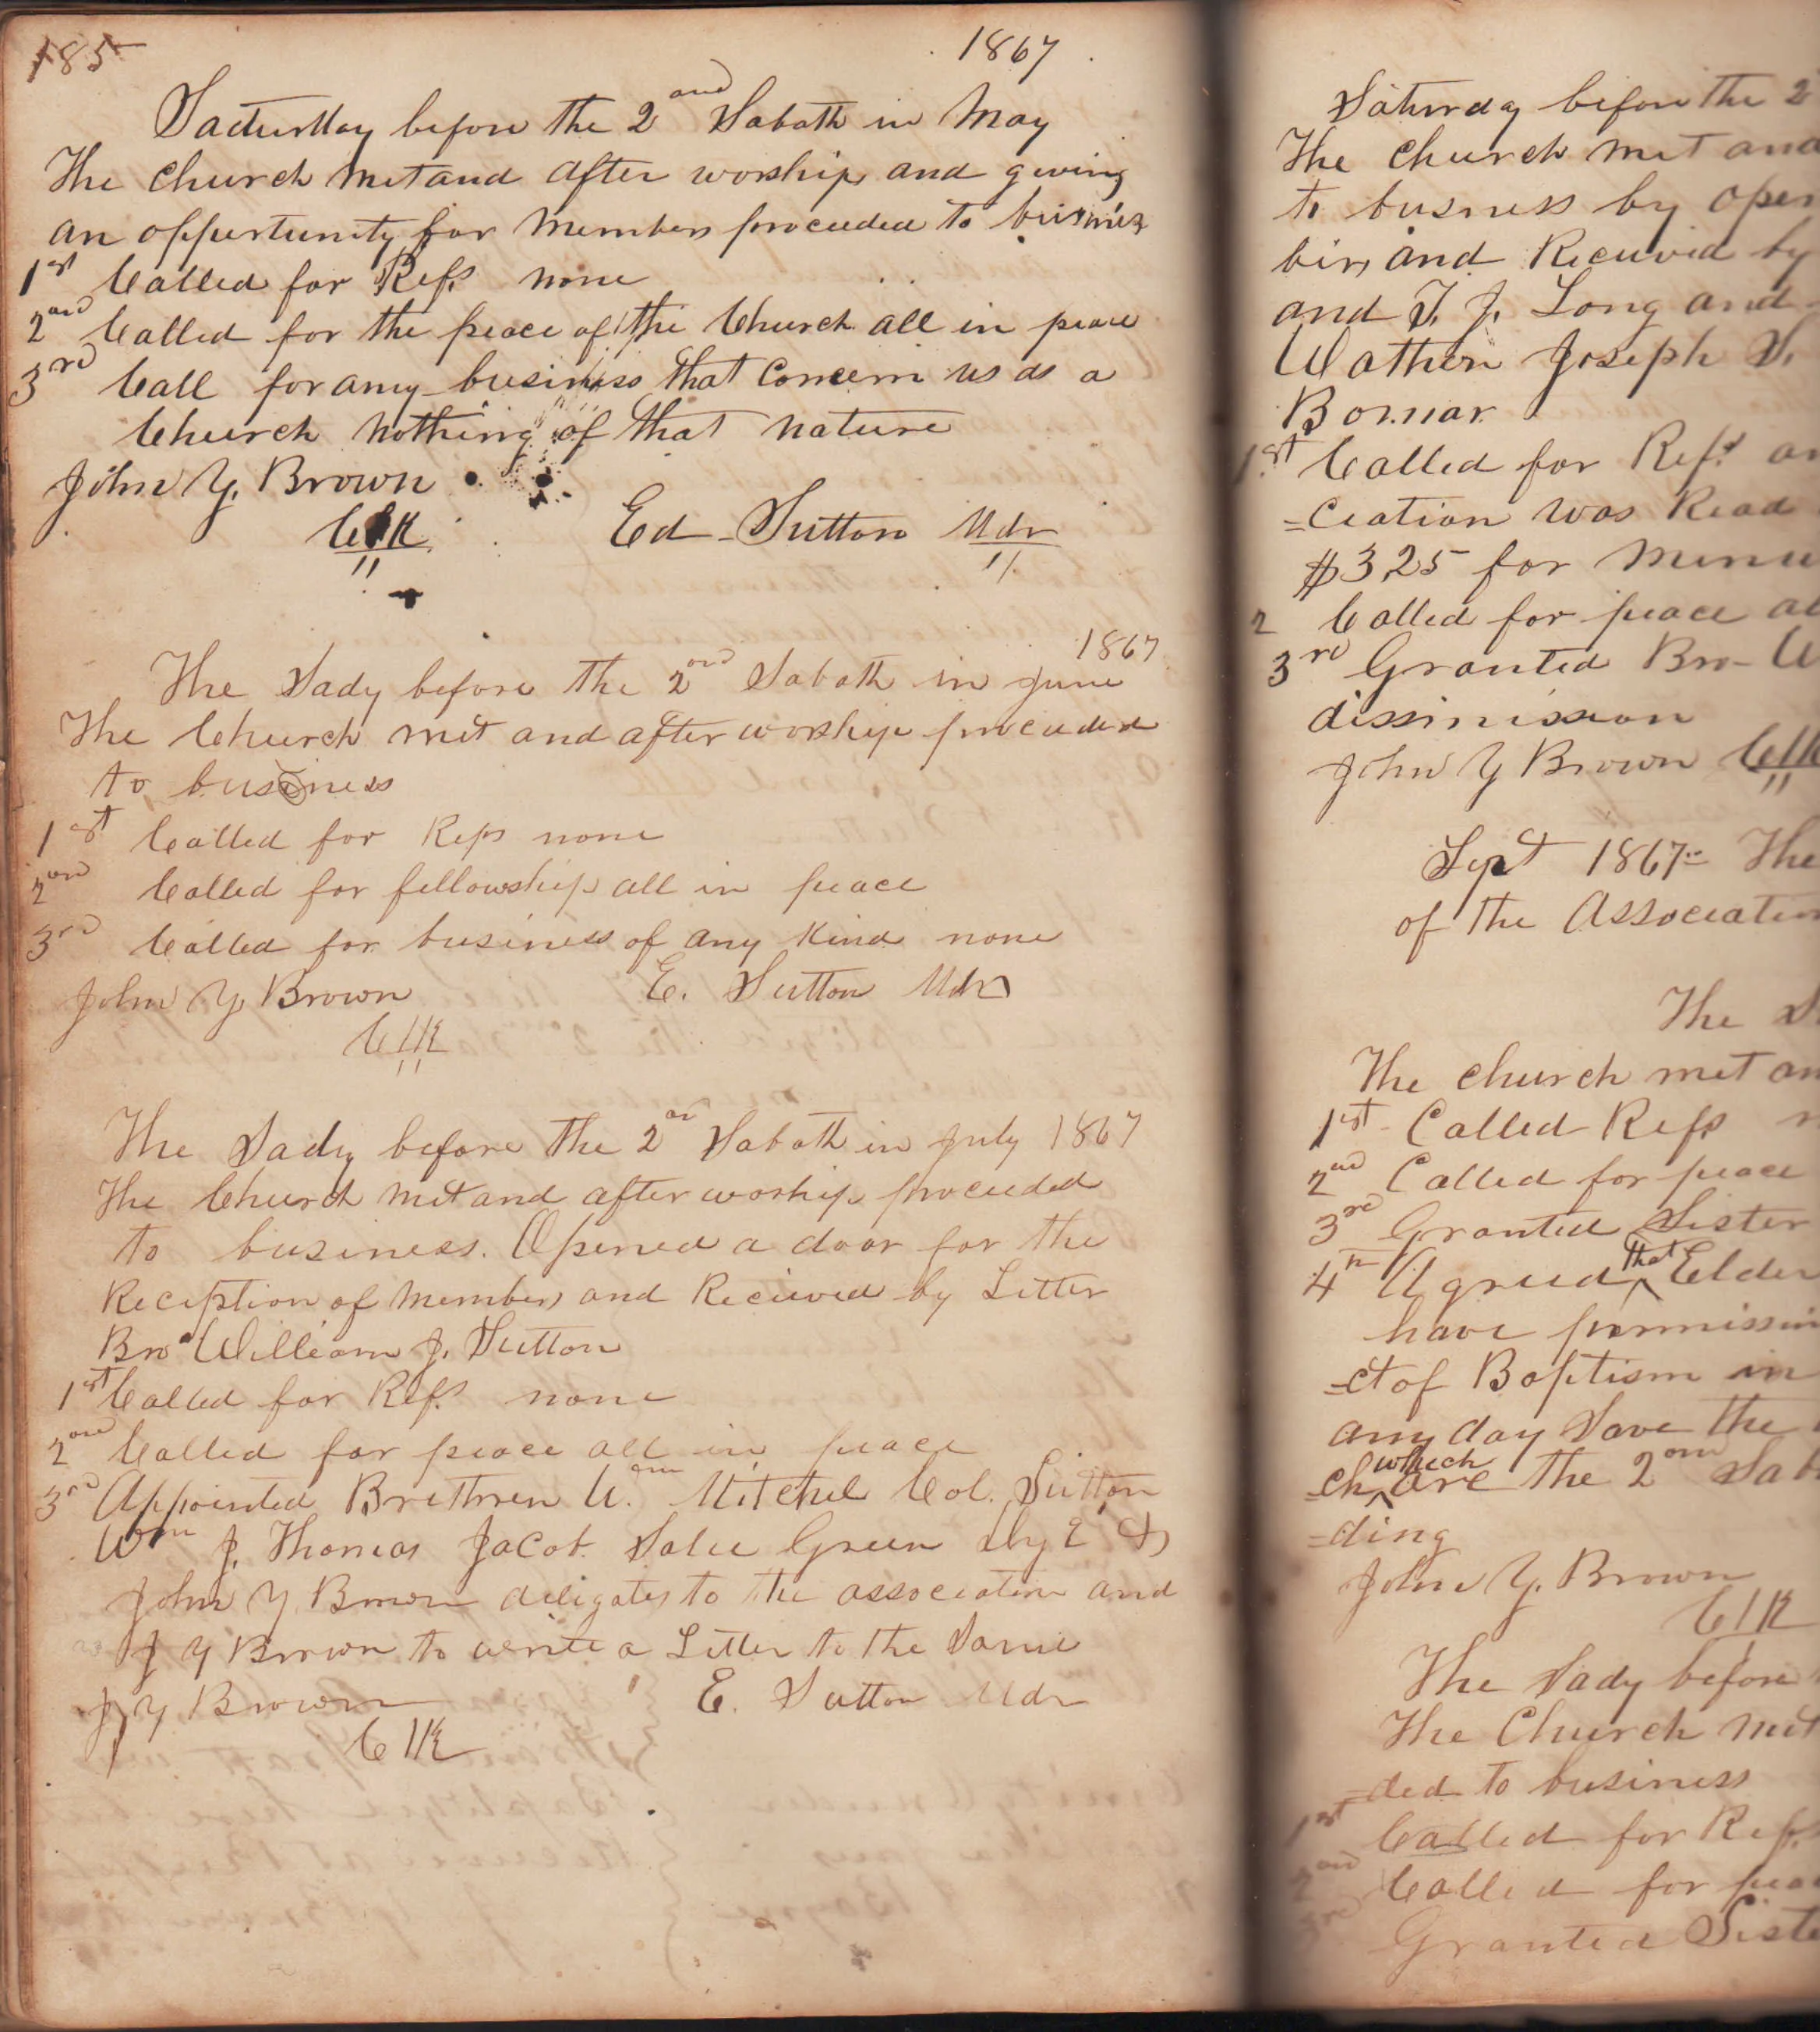 185
1867
Sacturday before the 2and Sabath in May
The Church met and after worship and giving
an oppertunity for members proceeded to business
1st Called for Refs none
2and Called for the peace of the Church all in peace
3rd Call for any business that Concern us as a
Church nothing of that nature
John Y. Brown
Clk
Ed Sutton Mdr
1867
The Sady before the 2and Sabath in June
The Church met and after worship proceeded
to business
1st Called for Refs none
2and Called for fellowship all in peace
3rd Called for business of any kind none
John Y. Brown E. Sutton Mdr
Clk
The Sady before the 2an Sabath in July 1867
The Church met and after worship proceeded
to business. Opened a door for the
Reception of members and Recieved by Letter
Bro William J. Sutton
1st Called for Refs none
2and Called for peace all in peace
3rd Appointed Brethren Mitchel Col. Sutton
Wm J. Thomas Jacob Salee Green &
John Y Brown deligates to the association and
J Y Brown to write a Letter to the Same
J Y Brown E. Sutton Mdr
Clk
Saturday before the 2
The Church met and
to busness by open
bers and Recieved by
and T. J. Long and
Wathen Joseph S.
Bomar
1st Called for Refs an
=ciation was Read
$3,25 for minu
2 Called for peace al
3rd Granted Bro W
dissimission
John Y Brown Clk
Sept 1867 The
of the Association
The S
The church met an
1st Called Refs n
2nd Called for peace
3rd Granted Sister
4th Agreed that Elder
have permission
=ct of Baptism in
any day Save the
=ch which are the 2and Sab
=ding
John Y. Brown
Clk
The Sady before
The Church met
=ded to business
1st Called for Refs
2and Called for peac
3rd Granted Siste